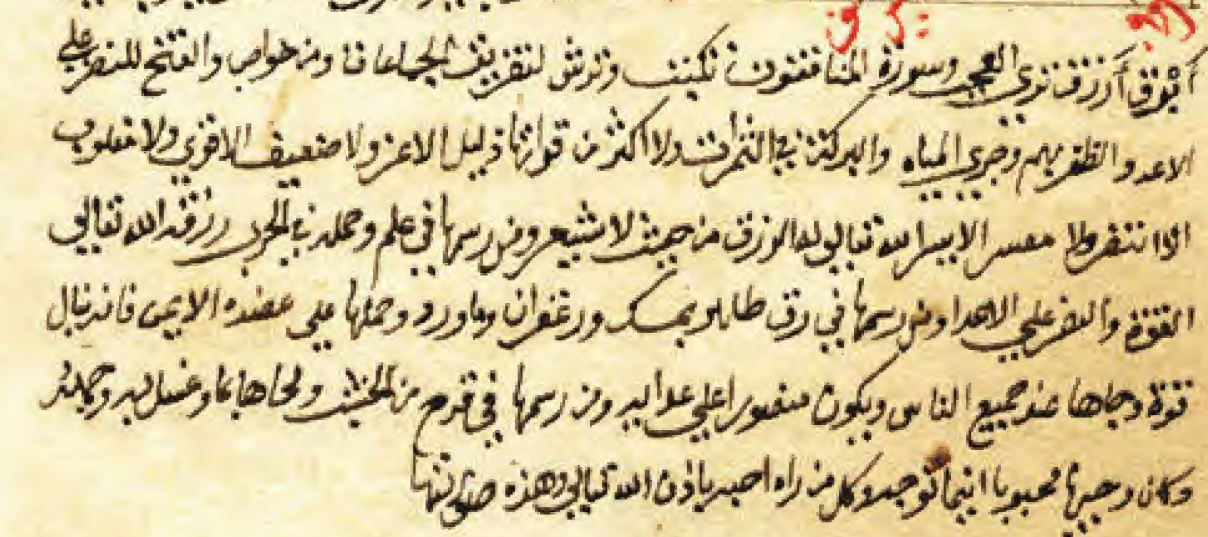 وسورة المنافقون تكتب وترش لتفريق الجماعات ومن خواص والفتح للنصر على
الاعدو الظفر بهم وجري المياه والبركة في الثمرات ولا اكثر من قراتها ذليل الا عز ولا ضعيف الا قوي ولا مغلوب
الا انتصر ولا معسر الا يسر الله تعالى له الرزق من حيث لا يشعر ومن رسمها في علم وحمله في الحرب رزقه الله تعالى
القوة والنصر على الاعدا ومن رسمها في رق طاهر بمسك وزعفران وماورد وحملها على عضده الايمن فانه ينال
قوة وجاها عند جميع الناس ويكون منصورا على اعدايه ومن رسمها في قدح من الخشب ومحاها بماء وغسل به وجهه
وكان وجيها محبوبا اينما توجه وكل من راه احبه باذن الله تعالى وهذه صفتها